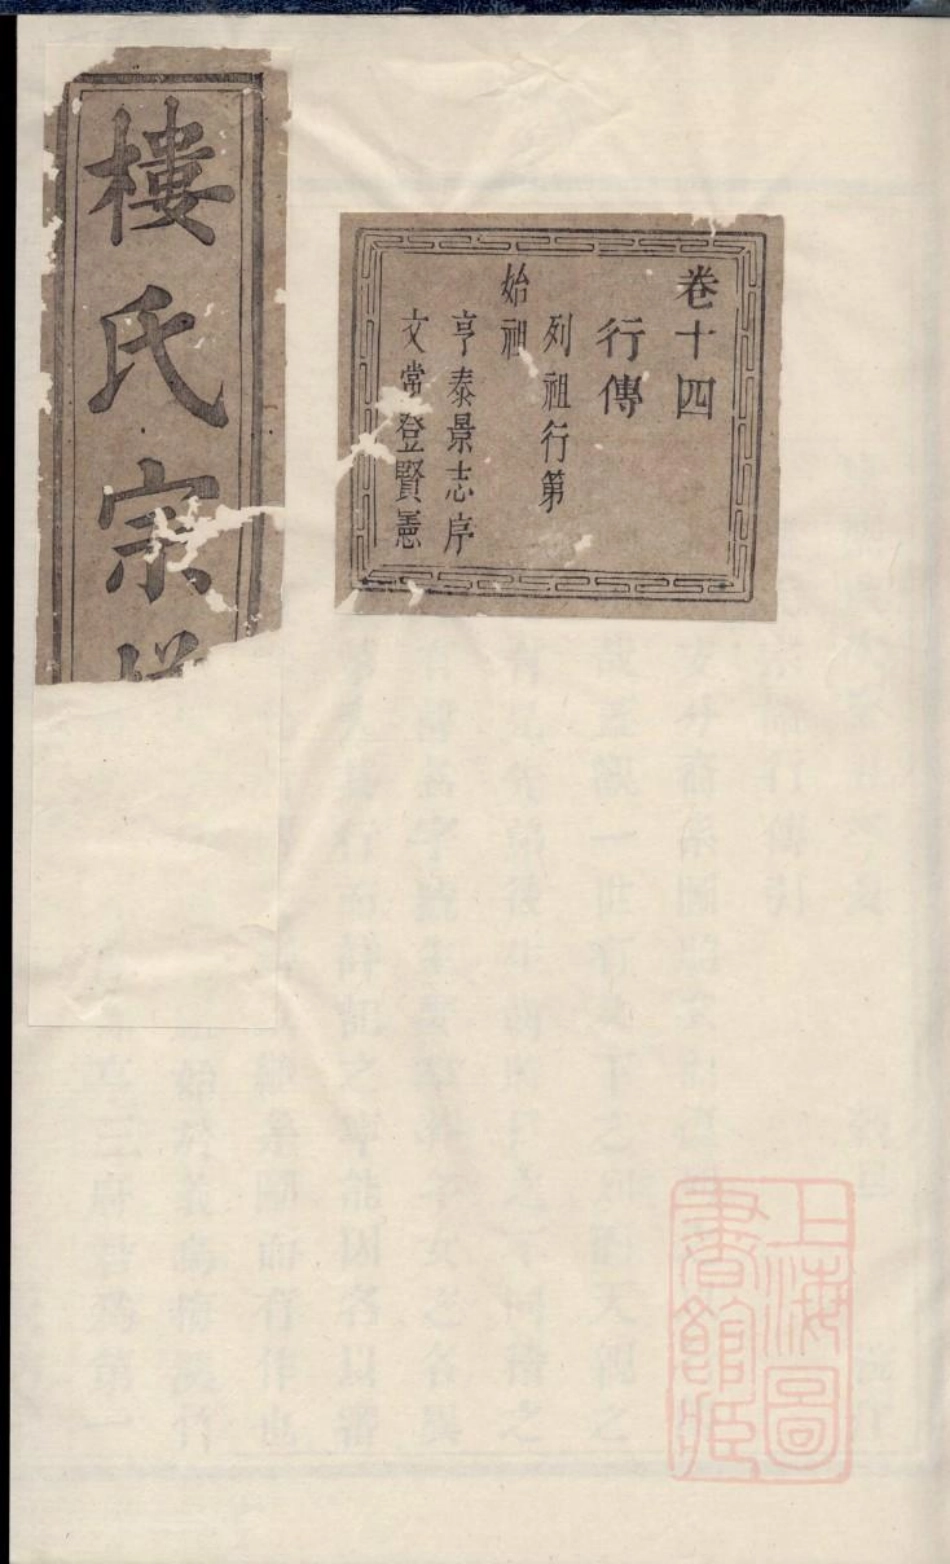 卷十四
行傳
列祖行第
始祖
亨泰景志序
文常登賢憲
樓氏宗
上海圖
書館藏